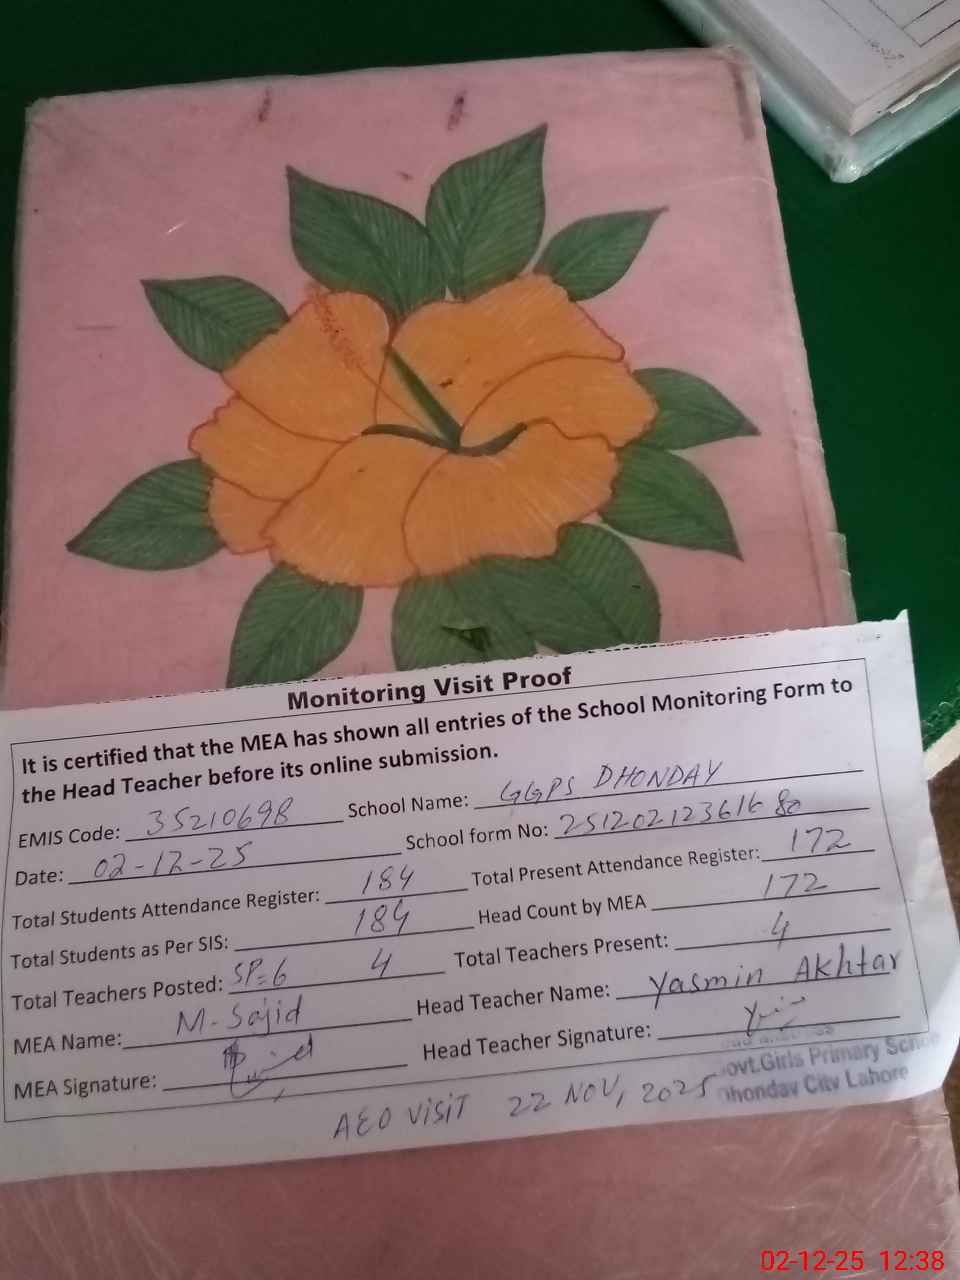 Monitoring Visit Proof
It is certified that the MEA has shown all entries of the School Monitoring Form to
the Head Teacher before its online submission.
EMIS Code: 35210698 School Name: GGPS DHONDAY
Date: 02-12-25 School form No: 25120212361680
Total Students Attendance Register: 184 Total Present Attendance Register: 172
Total Students as Per SIS: 184 Head Count by MEA 172
Total Teachers Posted: SP=6 4 Total Teachers Present: 4
MEA Name: M-Sajid Head Teacher Name: Yasmin Akhtar
MEA Signature: Head Teacher Signature:
ovt.Girls Primary Schoo
AEO VISIT 22 NOV, 2025 honday City Lahore
02-12-25 12:38